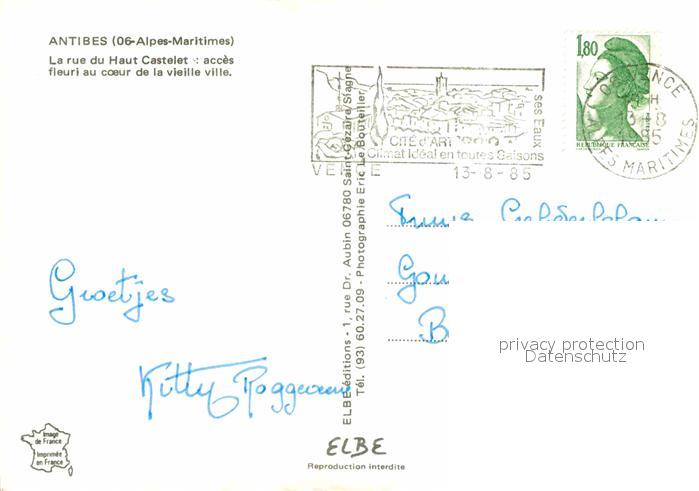 ANTIBES (06-Alpes-Maritimes)
La rue du Haut Castelet : accès
fleuri au cœur de la vieille ville.
1,80
REPUBLIQUE FRANÇAISE
VENCE
ES MARITIMES
CITÉ d'ART
ses Eaux
Climat Idéal en toutes Saisons
VENCE
13-8-85
ELBE éditions - 1, rue Dr. Aubin 06780 Saint-Cézaire/Siagne
Tél. (93) 60.27.09 - Photographie Eric Le Bouteiller
Groetjes
Kitty
Gou
B
privacy protection
Datenschutz
Image
de France
Imprimée
en France
ELBE
Reproduction interdite